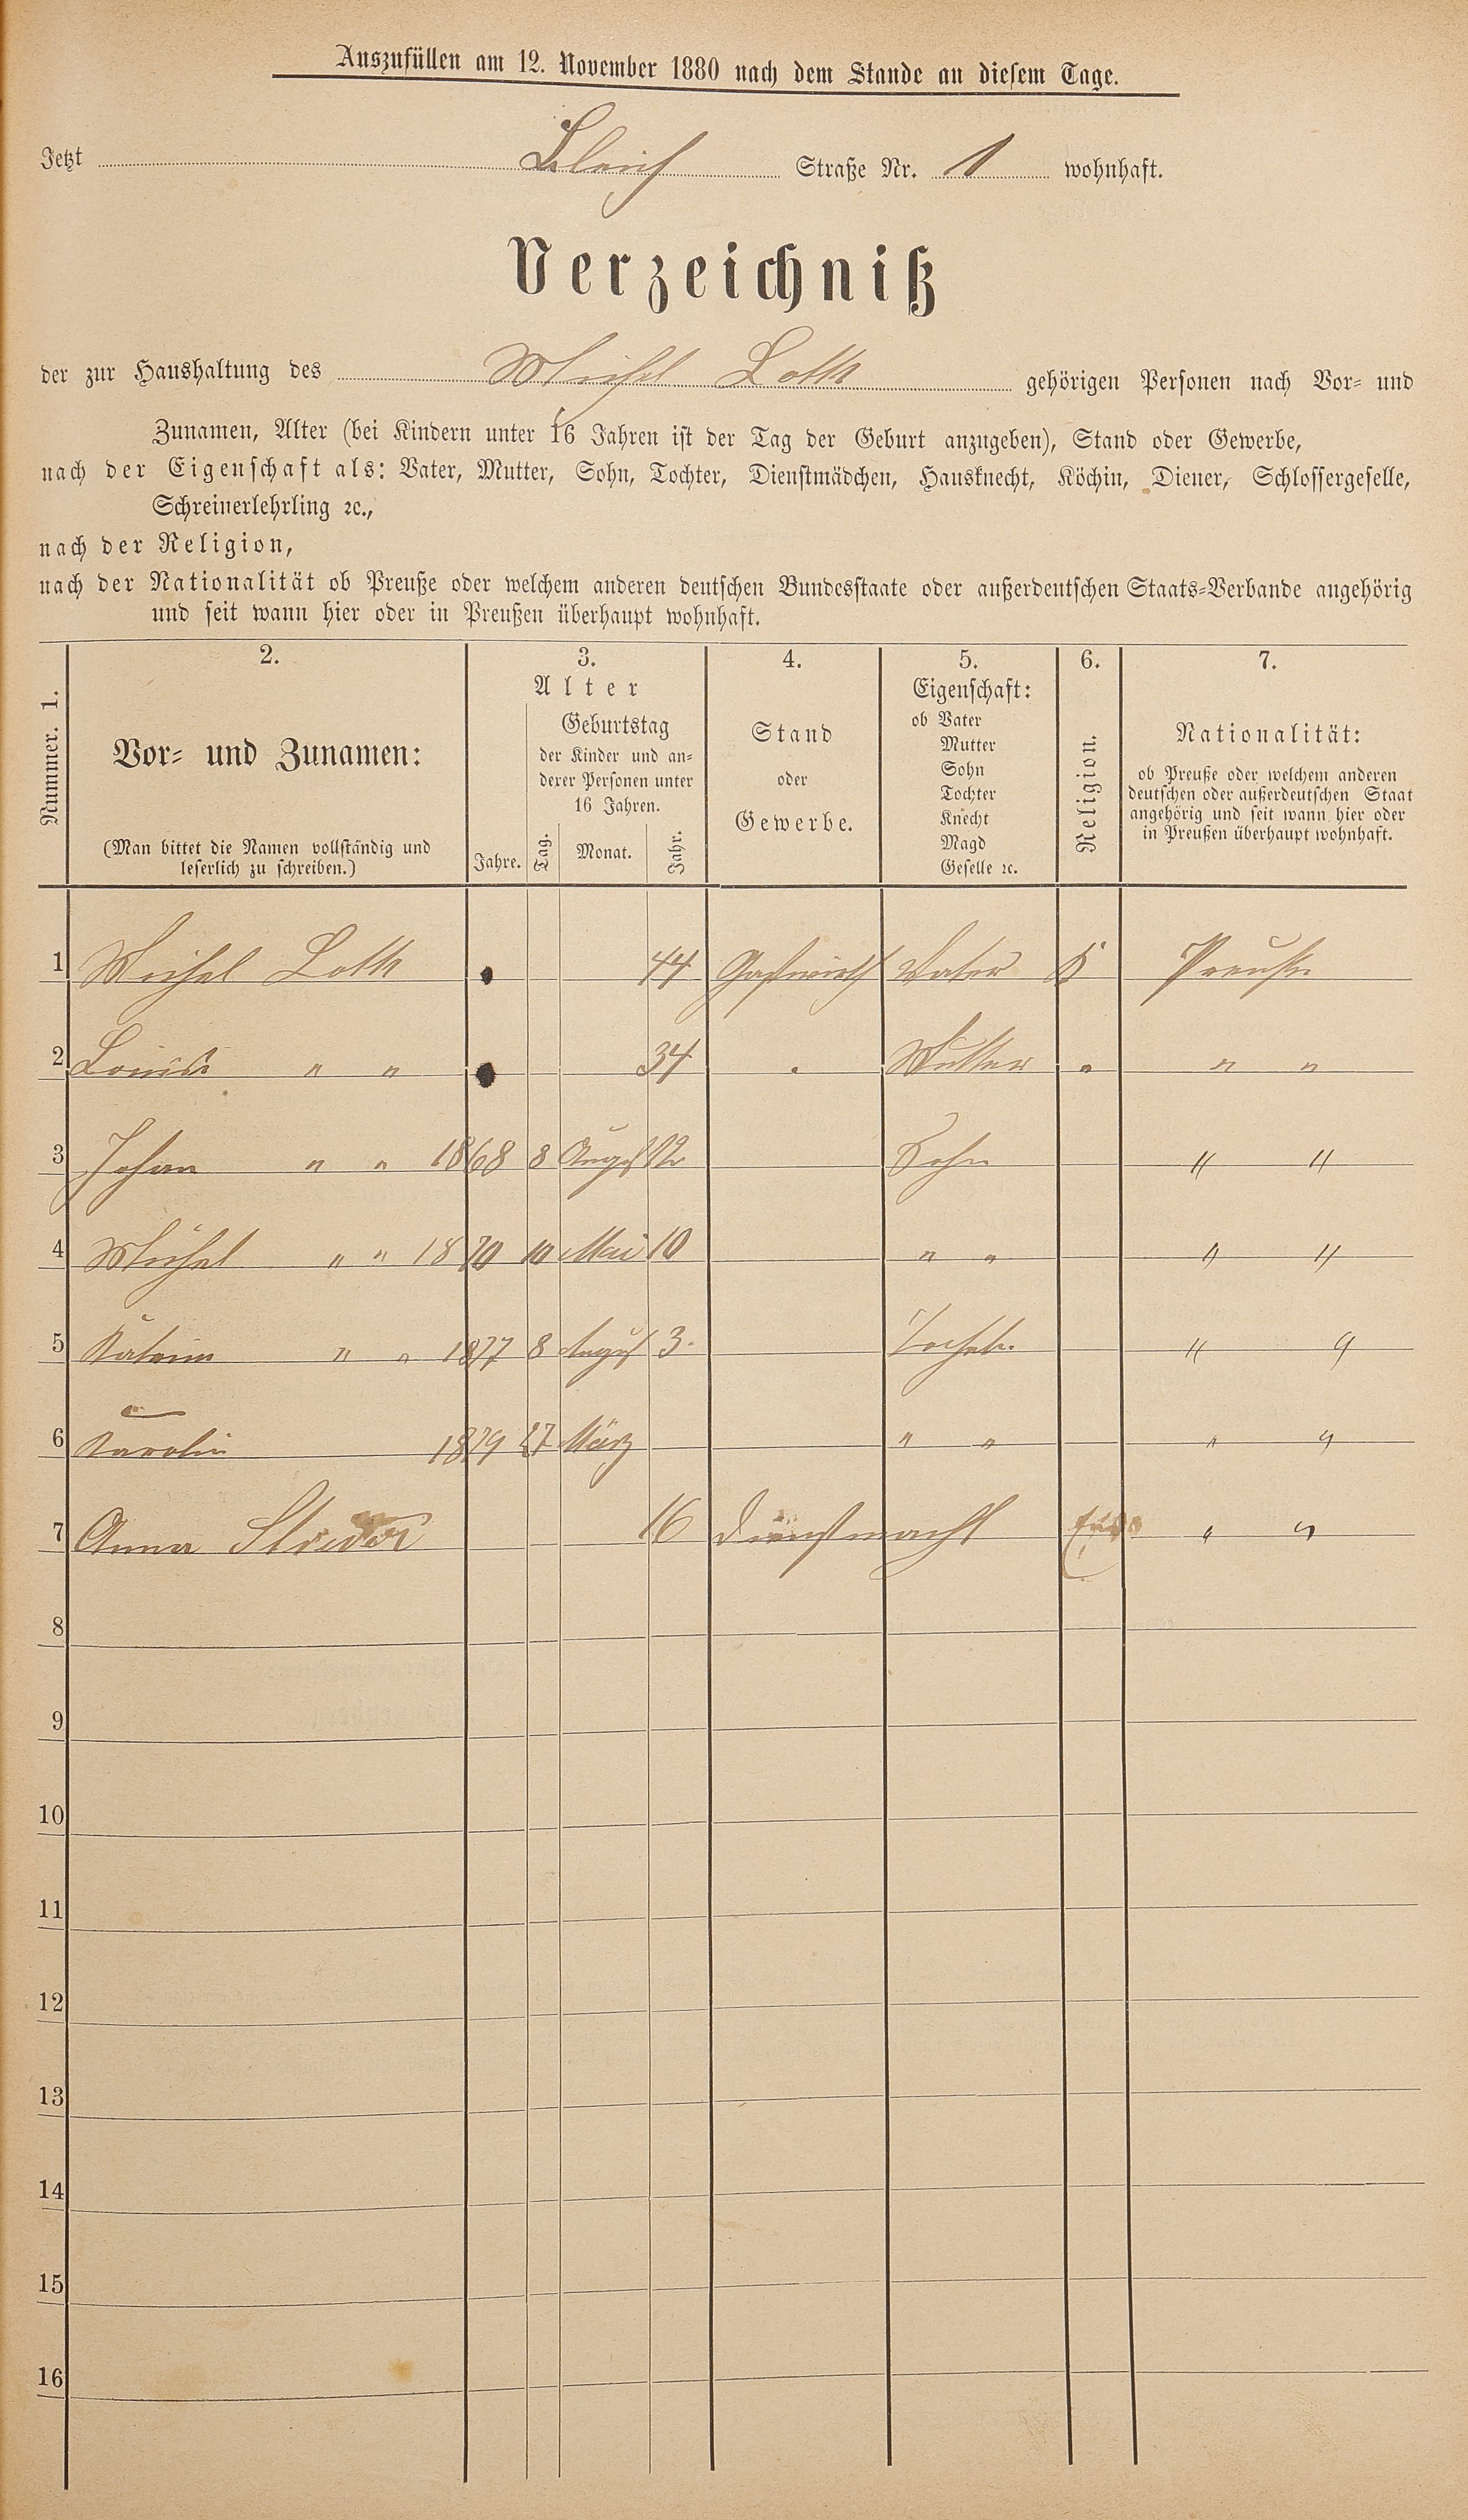 Auszufüllen am 12. November 1880 nach dem Stande an diesem Tage.
Jetzt Bleich Straße Nr. 1 wohnhaft.
Verzeichniß
der zur Haushaltung des Michel Loth gehörigen Personen nach Vor- und
Zunamen, Alter (bei Kindern unter 16 Jahren ist der Tag der Geburt anzugeben), Stand oder Gewerbe,
nach der Eigenschaft als: Vater, Mutter, Sohn, Tochter, Dienstmädchen, Hausknecht, Köchin, Diener, Schlossergeselle,
Schreinerlehrling ꝛc.,
nach der Religion,
nach der Nationalität ob Preuße oder welchem anderen deutschen Bundesstaate oder außerdeutschen Staats-Verbande angehörig
und seit wann hier oder in Preußen überhaupt wohnhaft.
Nummer. 1.
2.
Vor- und Zunamen:
(Man bittet die Namen vollständig und
leserlich zu schreiben.)
3.
Alter
Jahre.
Geburtstag
der Kinder und an-
derer Personen unter
16 Jahren.
Tag. Monat. Jahr.
4.
Stand
oder
Gewerbe.
5.
Eigenschaft:
ob Vater
Mutter
Sohn
Tochter
Knecht
Magd
Geselle ꝛc.
6.
Religion.
7.
Nationalität:
ob Preuße oder welchem anderen
deutschen oder außerdeutschen Staat
angehörig und seit wann hier oder
in Preußen überhaupt wohnhaft.
1 Michel Loth 44 Gastwirth Vater K Preuße
2 Louise " " 34 Mutter " " "
3 Johan " " 1868 8 August 12 Sohn " "
4 Michel " " 1870 10 Mai 10 " " " "
5 Katrina " " 1877 8 August 3 Tochter " "
6 Karolin 1879 27 März " " " "
7 Anna 16 Dienstmacht " "
8
9
10
11
12
13
14
15
16